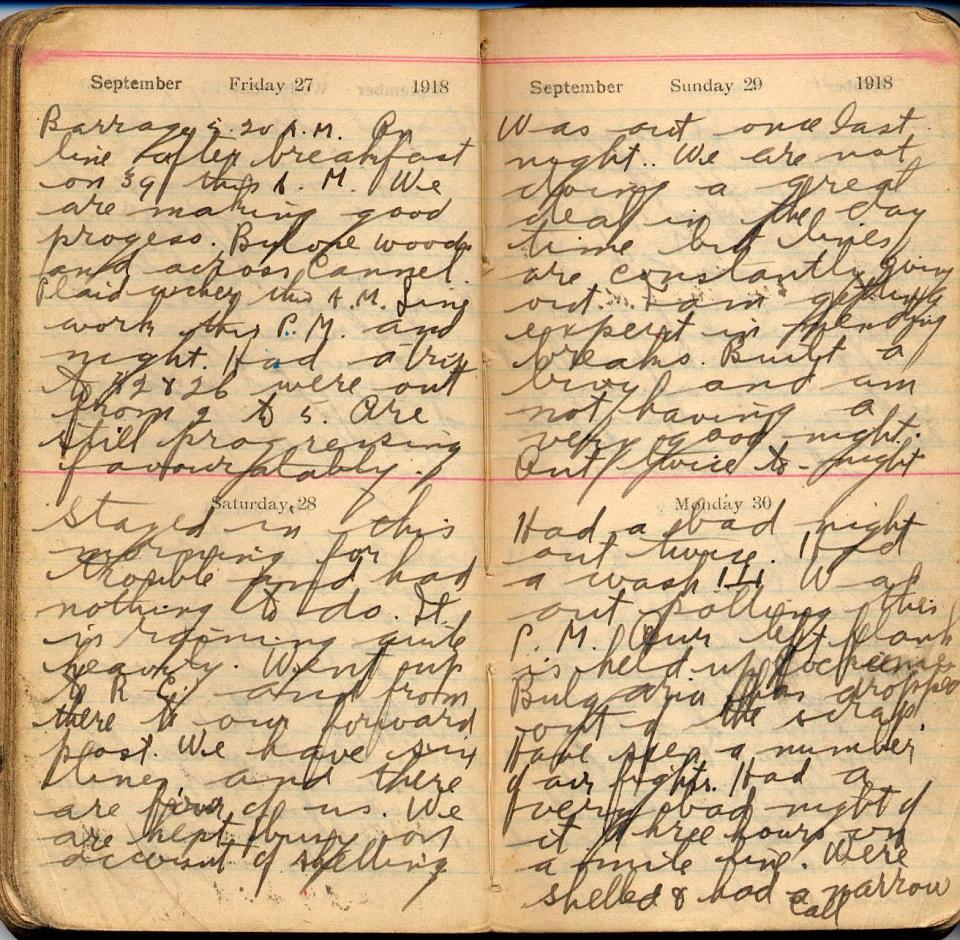 September Friday 27 1918
Barrage 5.20 A.M. On
line after breakfast
on 39 this A. M. We
are making good
progess. Burlone woods
and across Cannel.
Plaid this A.M. Line
work this P.M. and
night. Had a trip
to 42 & 26 were out
from 2 to 5. Are
still progressing
favourablably.
Saturday 28
Stayed in this
morning for
trouble and had
nothing to do. It
is raining quite
heavily. Went up
to R E. and from
there to our forward
post. We have six
lines and there
are four of us. We
are kept busy on
account of shelling
September Sunday 29 1918
Was out once last
night. We are not
doing a great
deal in the day
time but lines
are constantly going
out. I am getting
expert in mending
breaks. Built a
bivy and am
not having a
very good night.
Out twice to-night
Monday 30
Had a bad night
out twice. Had
a wash!!! Was
out polling this
P. M. Our left flank
is held up
Bulgaria has dropped
out of the scrap.
Have seen a number
of air fights. Had a
very bad night of
it three hours on
a mile line. Were
shelled & had a narrow
call